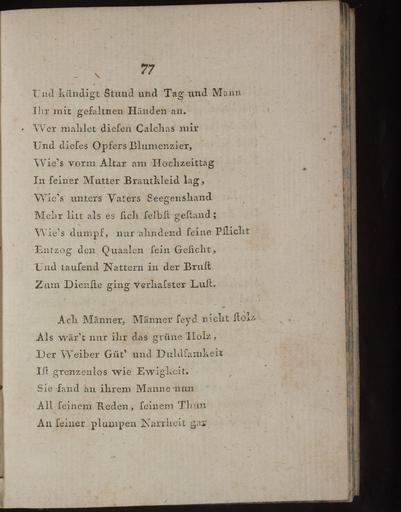 77
Und kündigt Stund und Tag und Mann
Ihr mit gefaltnen Händen an.
Wer mahlet dieſen Calchas mir
Und dieſes Opfers Blumenzier,
Wie's vorm Altar am Hochzeittag
In ſeiner Mutter Brautkleid lag,
Wie's unters Vaters Seegenshand
Mehr litt als es ſich ſelbſt geſtand;
Wie's dumpf, nur ahndend ſeine Pflicht
Entzog den Quaalen ſein Geſicht,
Und tauſend Nattern in der Bruſt
Zum Dienſte ging verhaſster Luſt.
Ach Männer, Männer ſeyd nicht ſtolz
Als wär't nur ihr das grüne Holz,
Der Weiber Güt' und Duldſamkeit
Iſt grenzenlos wie Ewigkeit.
Sie fand an ihrem Manne nun
All ſeinem Reden, ſeinem Thun
An ſeiner plumpen Narrheit gar